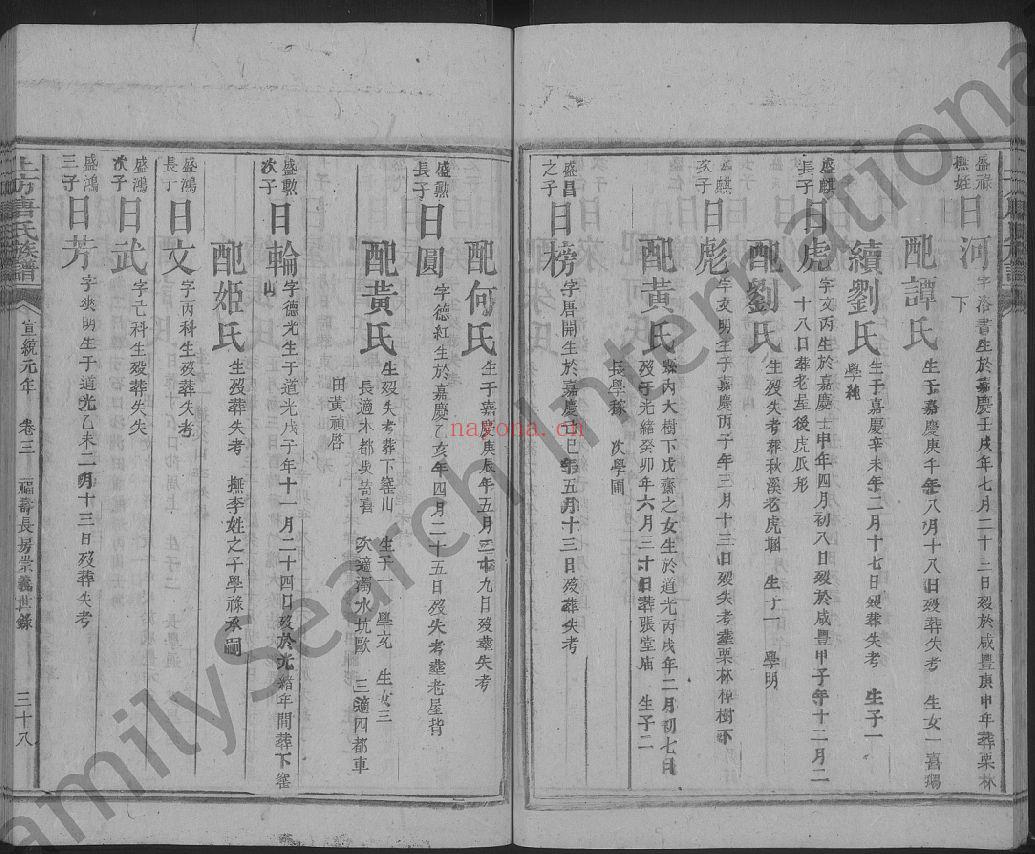 盛祿
撫姪
日河
字洛書生於嘉慶壬戌年七月二十二日歿於咸豐庚申年葬栗林
下
配譚氏
生于嘉慶庚午年八月十八日歿葬失考 生女一喜瑒
續劉氏
生于嘉慶辛未年二月十七日歿葬失考 生子一
學純
盛麒
長子
日虎
字文丙生於嘉慶壬申年四月初八日歿於咸豐甲子年十二月二
十八日葬老屋後虎爪形
配劉氏
生歿失考葬秋溪老虎 生子一 學明
盛麒
次子
日彪
字文明生于嘉慶丙子年三月十三日歿失考葬栗林樟樹下
配黃氏
縣內大樹下戊齋之女生於道光丙戌年二月初七日
歿于光緒癸卯年六月三十日葬張堂庙 生子二
長學稼 次學圃
盛昌
之子
日榜
字唐開生於嘉慶己巳年五月十三日歿葬失考
配何氏
生于嘉慶庚辰年五月二十九日歿葬失考
盛勲
長子
日圓
字德紅生於嘉慶乙亥年四月二十五日歿失考葬老屋背
配黃氏
生歿失考葬下窑山 生子一 學充 生女三
長適木都 喜 次適濁水坑歐 三適四都車
田黃禎啓
盛勲
次子
日輪
字德光生于道光戊子年十一月二十四日歿於光緒年間葬下窑
山
配姬氏
生歿葬失考 撫李姓之子學祿承嗣
盛鴻
長子
日文
字丙科生歿葬失考
盛鴻
次子
日武
字亡科生歿葬失失
盛鴻
三子
日芳
字炎明生于道光乙未二月十三日歿葬失考
上方唐氏族譜
宣統元年 卷三 福壽長房崇義世錄 三十八
FamilySearch International
nayona.cn